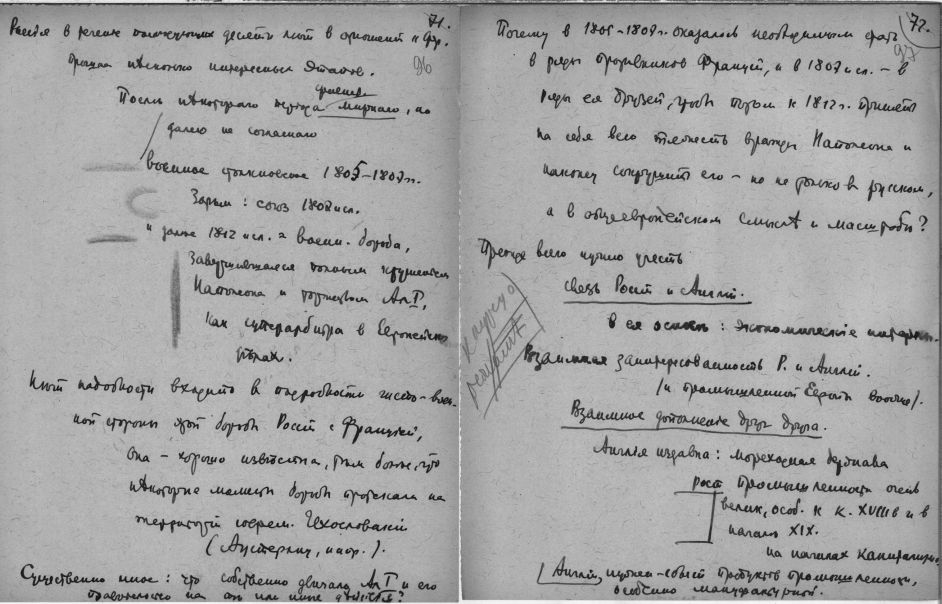 71.
96
Россія в течение последующих десяти лѣт в отношеніи к Фр.
прошла нѣсколько интересных этапов.
Послѣ нѣкотораго періода мирнаго, но
далеко не согласнаго
военное столкновение 1805-1807 гг.
Затѣм: союз 1807 и сл.
и далѣе 1812 и сл. г. воен. борьба,
завершившаяся полным крушеніем
Наполеона и торжеством Ал I,
как суперарбитра в Европейских
дѣлах.
Нѣт надобности входить в подробности чисто-воен-
ной стороны этой борьбы Россіи с Францией,
она - хорошо извѣстна, тѣм болѣе, что
нѣкоторые моменты борьбы протекали на
территоріи соврем. Чехословакіи
(Аустерлиц, напр.).
Существенно иное: что собственно двигало Ал I и его
правительство на те или иные дѣйствія?
72.
97
Почему в 1805-1807 г. оказалось необходимым стать
в ряды противников Франціи, и в 1807 и сл. - в
ряды ея друзей, чтобы потом к 1812 г. принять
на себя всю тяжесть вражды Наполеона и
наконец сокрушить его - но не только в русском,
а в общеевропейском смыслѣ и масштабѣ?
Прежде всего нужно учесть
связь Россіи и Англіи.
В ея основѣ: экономические интересы.
Взаимная заинтересованность Р. и Англіи.
(и промышленной Европы вообще).
Взаимное дополнение друг друга.
Англія издавна: мореходная держава
рост промышленности очень
велик, особ. к к. XVIII в и в
начале XIX.
на началах капитализма
Англіи, нужен-сбыт продуктов промышленности,
особенно мануфактурной.